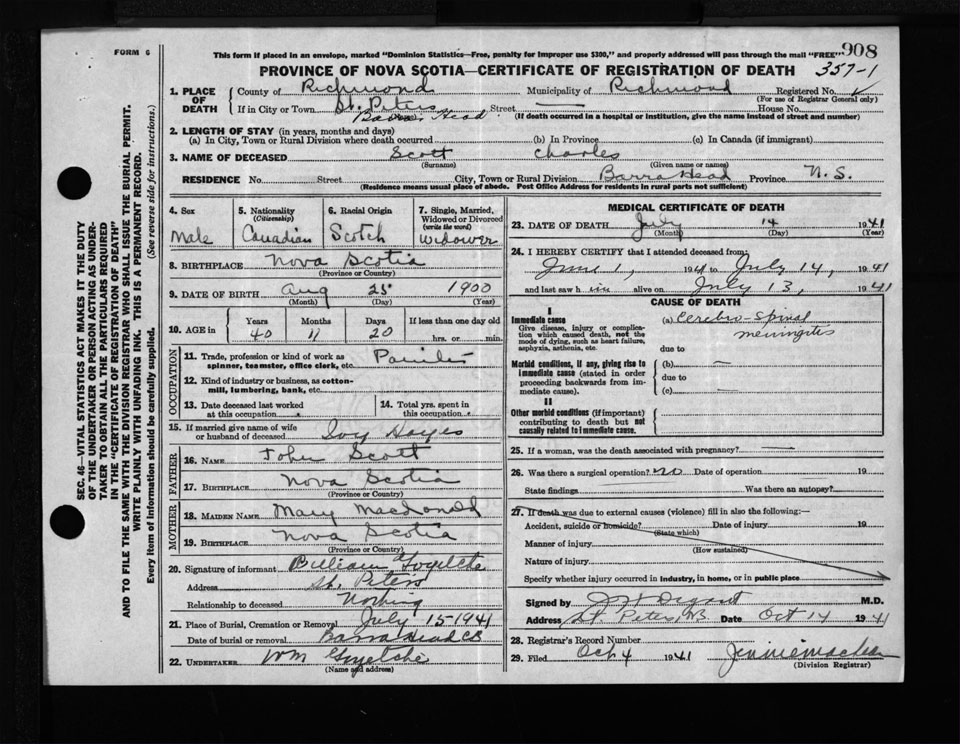 FORM 6
This form if placed in an envelope, marked "Dominion Statistics—Free, penalty for improper use $300," and properly addressed will pass through the mail "FREE"
908
PROVINCE OF NOVA SCOTIA—CERTIFICATE OF REGISTRATION OF DEATH 357-1
1. PLACE OF DEATH
County of Richmond Municipality of Richmond Registered No.
(For use of Registrar General only)
If in City or Town St. Peters Street House No.
Barra Head (If death occurred in a hospital or institution, give the name instead of street and number)
2. LENGTH OF STAY (in years, months and days)
(a) In City, Town or Rural Division where death occurred (b) In Province (c) In Canada (if immigrant)
3. NAME OF DECEASED Scott Charles
(Surname) (Given name or names)
RESIDENCE No. Street City, Town or Rural Division Barra Head Province N.S.
(Residence means usual place of abode. Post Office Address for residents in rural parts not sufficient)
4. Sex
Male
5. Nationality
(Citizenship)
Canadian
6. Racial Origin
Scotch
7. Single, Married, Widowed or Divorced
(write the word)
Widower
8. BIRTHPLACE Nova Scotia
(Province or Country)
9. DATE OF BIRTH Aug 25 1900
(Month) (Day) (Year)
10. AGE in
Years Months Days If less than one day old
40 11 20 hrs. or min.
OCCUPATION
11. Trade, profession or kind of work as
spinner, teamster, office clerk, etc.
12. Kind of industry or business, as cotton-
mill, lumbering, bank, etc.
13. Date deceased last worked
at this occupation
14. Total yrs. spent in
this occupation
15. If married give name of wife
or husband of deceased Ivy Hayes
FATHER
16. NAME John Scott
17. BIRTHPLACE Nova Scotia
(Province or Country)
MOTHER
18. MAIDEN NAME Mary MacDonald
19. BIRTHPLACE Nova Scotia
(Province or Country)
20. Signature of informant William
Address St. Peters
Relationship to deceased
21. Place of Burial, Cremation or Removal July 15-1941
Date of burial or removal Barra Head CB
22. UNDERTAKER Wm
(Name and address)
MEDICAL CERTIFICATE OF DEATH
23. DATE OF DEATH July 14 1941
(Month) (Day) (Year)
24. I HEREBY CERTIFY that I attended deceased from
June 1, 1941 to July 14, 1941
and last saw him alive on July 13, 1941
CAUSE OF DEATH
I
Immediate cause
Give disease, injury or complica-
tion which caused death, not the
mode of dying, such as heart failure,
asphyxia, asthenia, etc.
(a) Cerebro-Spinal
meningitis
due to
Morbid conditions, if any, giving rise to
immediate cause (stated in order
proceeding backwards from im-
mediate cause).
(b) —
due to
(c)
II
Other morbid conditions (if important)
contributing to death but not
causally related to immediate cause.
25. If a woman, was the death associated with pregnancy? —
26. Was there a surgical operation? no Date of operation 19
State findings Was there an autopsy?
27. If death was due to external causes (violence) fill in also the following:—
Accident, suicide or homicide? Date of injury 19
(State which)
Manner of injury
(How sustained)
Nature of injury
Specify whether injury occurred in industry, in home, or in public place
Signed by M.D.
Address St. Peters, Date Oct 14 1941
28. Registrar's Record Number
29. Filed Oct 4 1941 Jennie
(Division Registrar)
SEC. 46—VITAL STATISTICS ACT MAKES IT THE DUTY
OF THE UNDERTAKER OR PERSON ACTING AS UNDER-
TAKER TO OBTAIN ALL THE PARTICULARS REQUIRED
IN THE "CERTIFICATE OF REGISTRATION OF DEATH"
AND TO FILE THE SAME WITH THE DIVISION REGISTRAR WHO SHALL ISSUE THE BURIAL PERMIT.
WRITE PLAINLY WITH UNFADING INK. THIS IS A PERMANENT RECORD.
Every item of Information should be carefully supplied. (See reverse side for instructions.)